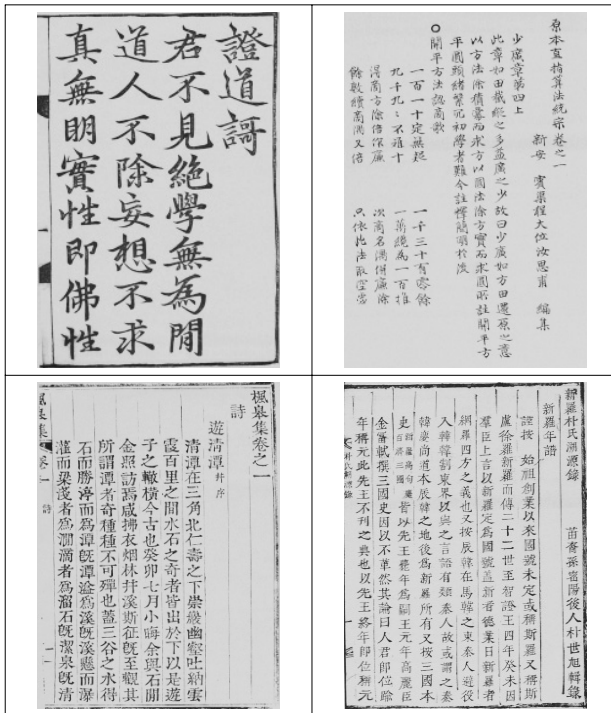 證道謌
君不見絶學無為閒
道人不除妄想不求
真無明實性即佛性
原本直指算法統宗卷之一
新安 賓渠程大位汝思甫 編集
少廣章第四上
此章如田截縱之多益廣之少故曰少廣如方田還原之意
以方法除積冪而求方以圓法除方實而求圓所註開平方
平圓頭緒繁冗初學者難今註釋簡明於後
○開平方法認商歌
一百一十定無疑 一千三十有零餘
九千九〻不離十 一萬纔為一百推
得商方除倍作廉 次商名隅併廉除
餘數續商隅又倍 只依此法取空虛
楓皋集卷之一
詩
遊清潭 并序
清潭在三角北仁壽之下崇巖幽壑吐納雲
霞百里之間水石之奇者皆出於下以是遊
子之轍橫今古也癸卯七月小晦余與石閒
金照訪焉咸拂衣烟林井溪斯征旣至觀其
所謂潭者奇種種不可殫也蓋三谷之水得
石而勝渟而爲潭旣潭溢爲溪旣溪懸而瀑
灌而梁淺者爲澗者爲溜石旣潔泉旣清
楓皋集 卷一 詩 一
新羅杜氏淵源錄 苗裔孫 後人杜世旭輯錄
新羅年譜
謹按 始祖創業以來國號未定或稱斯羅又稱斯
盧徐羅新羅而傳二十二世至智證王四年癸未因
羣臣上言以新羅定爲國號蓋新者德業日新羅者
網羅四方之義也又按辰韓在馬韓之東秦人避役
入韓韓割東界以與之言語有類秦人故或謂之秦
韓慶尚道本辰韓之地後爲新羅所有又按三國本
史百濟三國 皆以先王薨年爲嗣王元年高麗臣
金富軾撰三國史因以不革然其論曰人君即位踰
年稱元此先王不刊之典也以先王終年即位稱元